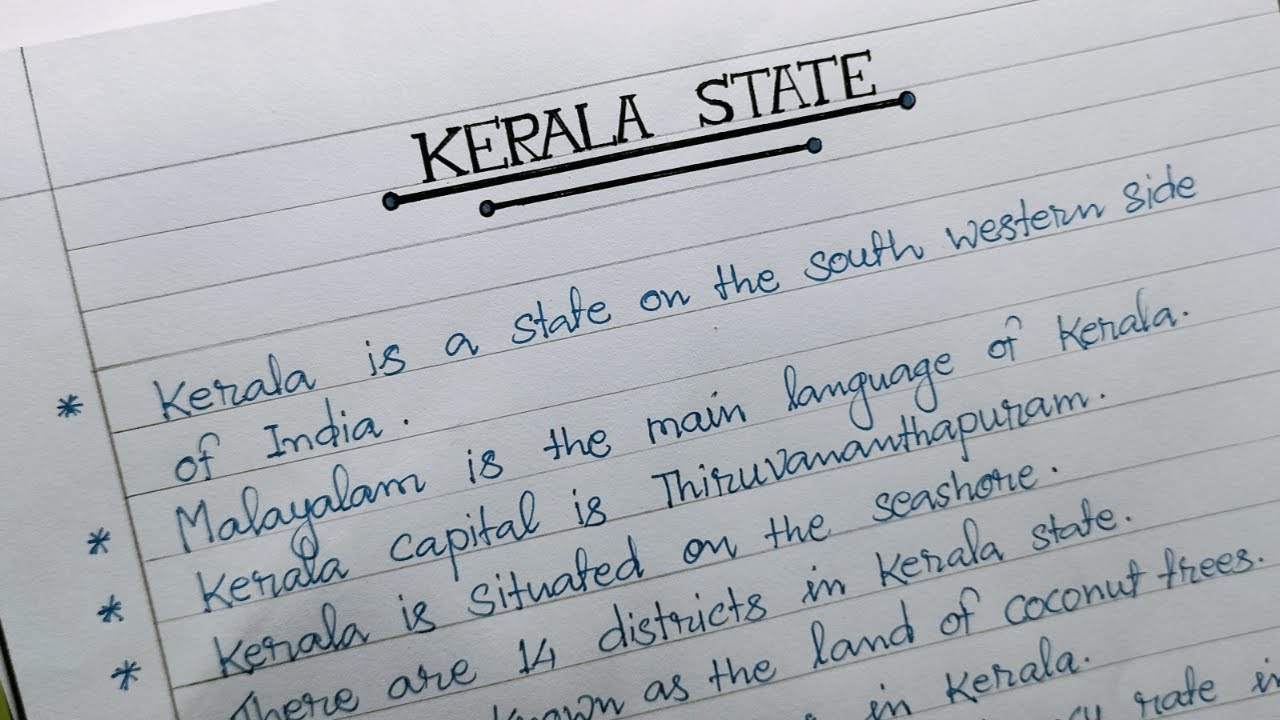 KERALA STATE
* Kerala is a state on the south western side
of India.
* Malayalam is the main language of Kerala.
* Kerala capital is Thiruvananthapuram.
* Kerala is situated on the seashore.
There are 14 districts in Kerala state.
known as the land of coconut trees.
in Kerala.
rate in